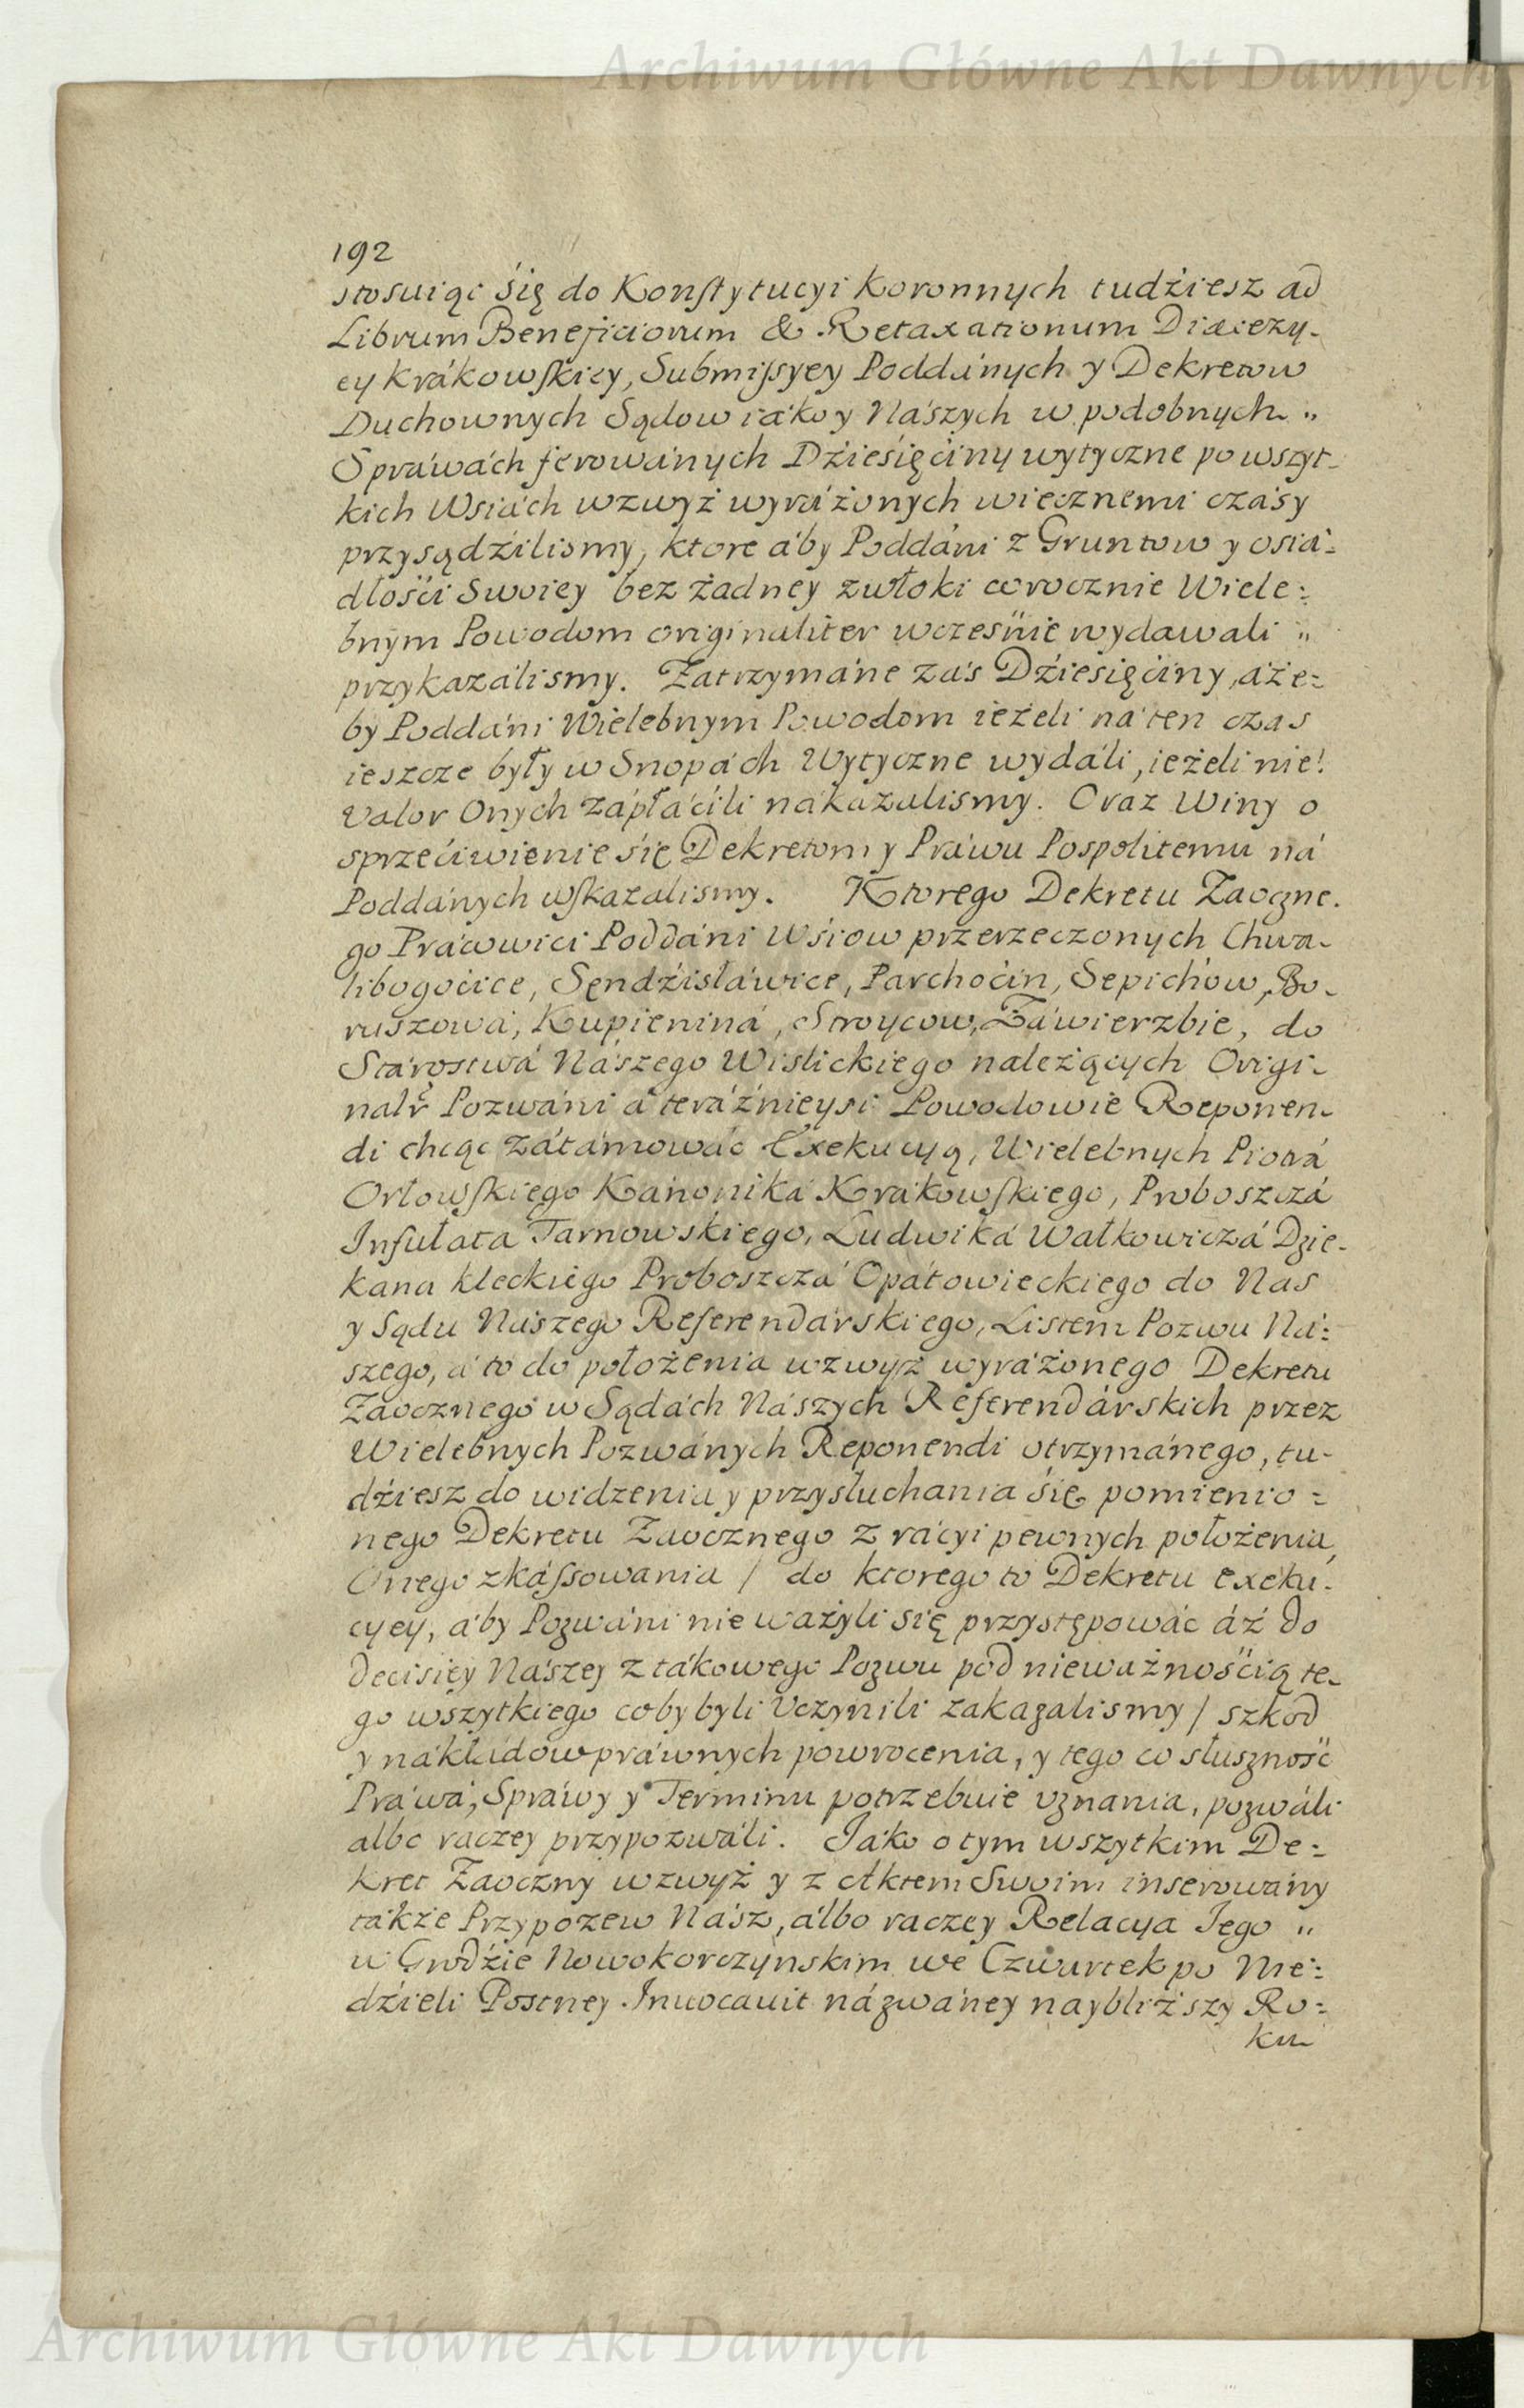 Archiwum Główne Akt Dawnych
192
stosuiąc się do Konstytucyi Koronnych tudźiesz ad
Librum Beneficiorum & Retaxationum Diæcezy-
ey krákowskiey, Submissyey Poddánych y Dekretow
Duchownych Sądow iáko y Nászych w podobnych „
Spráwách ferowánych Dźieśięćiny wytyczne po wszyt-
kich Wsiách wzwyż wyráżonych wiecznemi czásy
przysądźilismy, ktore áby Poddáni z Gruntow y osiá=
dłośći Swoiey bez żadney zwłoki corocznie Wiele=
bnym Powodom originaliter wcześnie wydawali „
przykazálismy. Zatrzymáne zás Dźieśięćiny, áże=
by Poddáni Wielebnym Powodom ieżeli ná ten czas
ieszcze były w Snopách Wytyczne wydáli, ieżeli nie!
Valor Onych zápłáćili nákazalismy. Oraz Winy o
sprzećiwienie śię Dekretom y Práwu Pospolitemu ná
Poddánych wskazalismy. Ktorego Dekretu Zaoczne-
go Práwowici Poddáni Wśiow przerzeczonych Chwa-
libogoćice, Sęndźisłáwice, Parchoćin, Sepichow, Bo-
ruszowá, Kupieniná, Stroycow, Záwierzbie, do
Stárostwá Nászego Wislickiego należących Origi-
nalr Pozwáni á teráźnieysi Powodowie Reponen-
di chcąc zátámowác Exekucyą, Wielebnych Piotrá
Orłowskiego Kánoniká Krákowskiego, Proboszczá
Infułata Tarnowskiego, Ludwiká Wałkowiczá Dzie-
kana kleckiego Proboszczá Opátowieckiego do Nas
y Sądu Nászego Referendárskiego, Listem Pozwu Ná=
szego, á to do położenia wzwyż wyráżonego Dekretu
Zaocznego w Sądách Nászych Referendárskich przez
Wielebnych Pozwánych Reponendi otrzymánego, tu-
dźiesz do widzenia y przysłuchania śię pomienio=
nego Dekretu Zaocznego z rácyi pewnych położenia,
Onego zkássowania / do ktorego to Dekretu exeku-
cyey, áby Pozwáni nie ważyli się przystępowác áż do
Decisiey Nászey z tákowego Pozwu pod nieważnośćią te-
go wszytkiego coby byli Vczynili zakazalismy / szkod
y nákładow práwnych powrocenia, y tego co słusznosć
Práwá, Spráwy y Terminu potrzebuie vznania, pozwáli
albo raczey przypozwáli. Jáko o tym wszytkim De=
kret Zaoczny wzwyż y z Aktem Swoim inserowány
tákże Przypozew Nász, álbo raczey Relacya Jego „
w Grodźie Nowokorczynskim we Czwartek po Nie=
dźieli Postney Inuocauit názwáney naybliższy Ro=
ku
Archiwum Główne Akt Dawnych